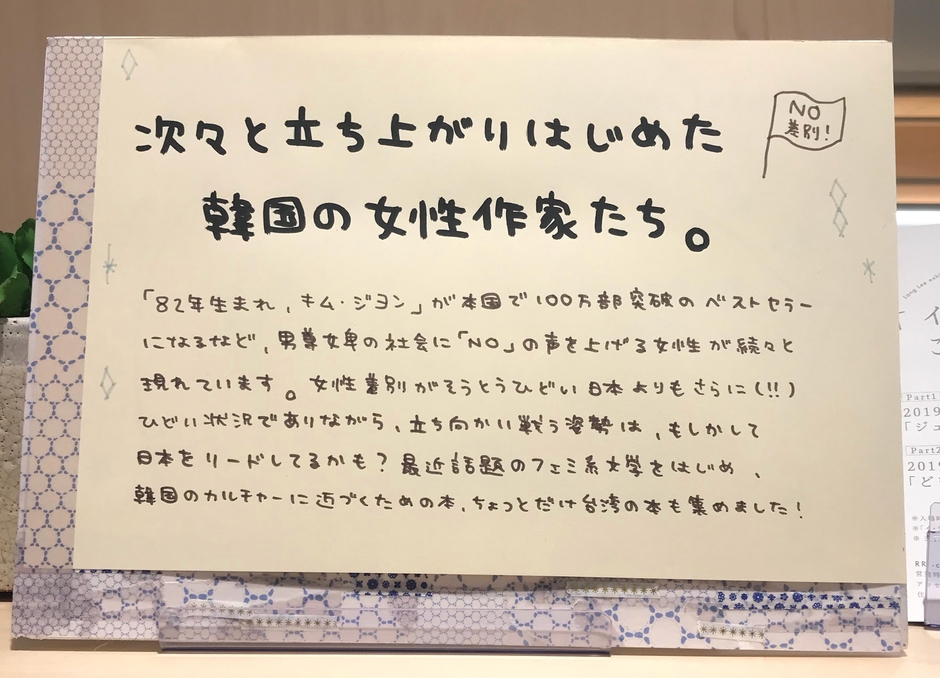 次々と立ち上がりはじめた
韓国の女性作家たち。
NO
差別!
「82年生まれ、キム・ジヨン」が本国で100万部突破のベストセラー
になるなど、男尊女卑の社会に「NO」の声を上げる女性が続々と
現れています。女性差別がそうとうひどい日本よりもさらに(!!)
ひどい状況でありながら、立ち向かい戦う姿勢は、もしかして
日本をリードしてるかも?最近話題のフェミ系文学をはじめ、
韓国のカルチャーに近づくための本、ちょっとだけ台湾の本も集めました!
イ
こ
Part1
2019
「ジュ
Part2
2019
「ど